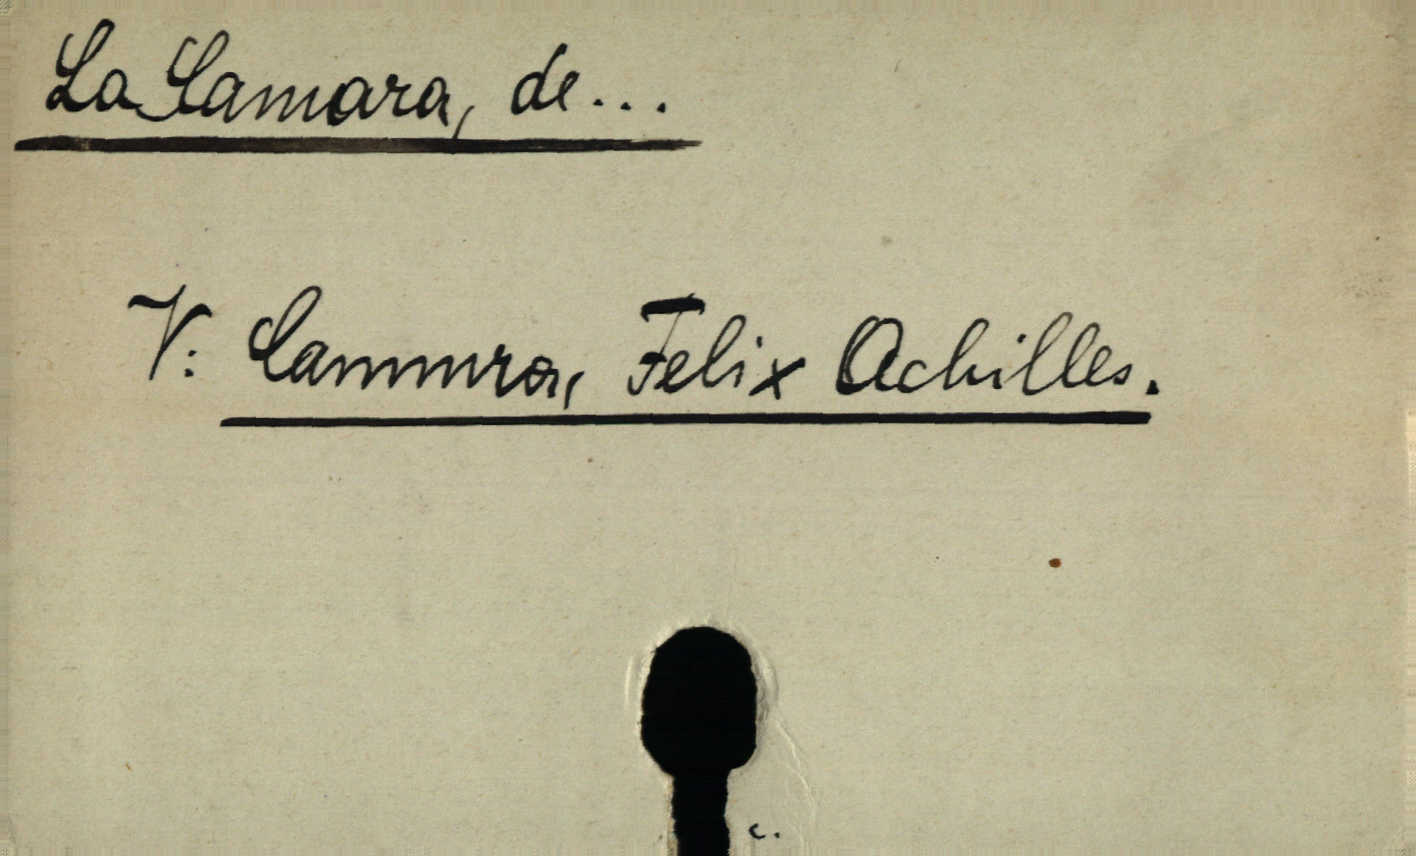 La Camara, de...
V: Cammura, Felix Achilles.
c.